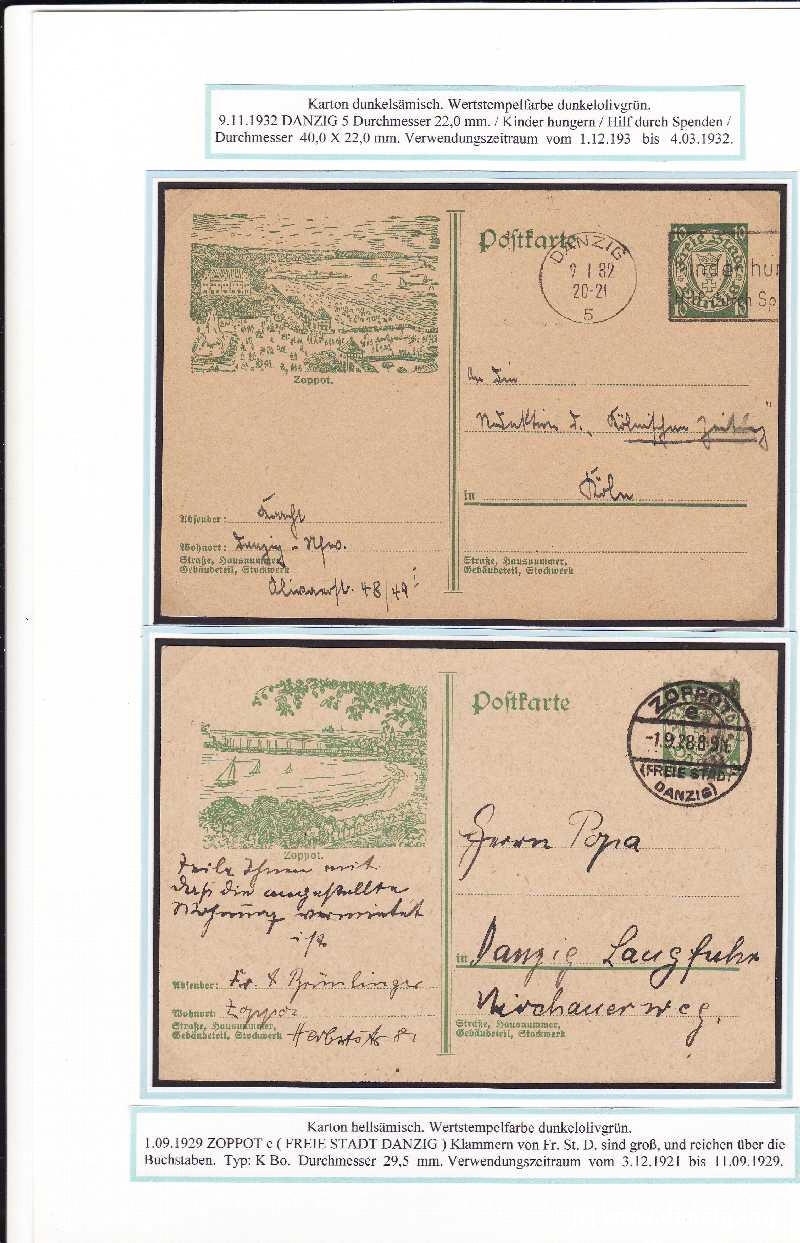 Karton dunkelsämisch. Wertstempelfarbe dunkelolivgrün.
9.11.1932 DANZIG 5 Durchmesser 22,0 mm. / Kinder hungern / Hilf durch Spenden /
Durchmesser 40,0 X 22,0 mm. Verwendungszeitraum vom 1.12.193 bis 4.03.1932.
Postkarte
DANZIG
9 1 32
20-21
5
10 10
Freie Stadt
Danzig
10 10
Kinder hun
Hilf durch Sp
Zoppot.
An die
Redaktion d. „Kölnischen Zeitung"
in Köln
Absender: Kracht
Wohnort: Danzig - Nfw.
Straße, Hausnummer,
Gebäudeteil, Stockwerk
Olivaerst. 48/49 I
Straße, Hausnummer,
Gebäudeteil, Stockwerk
Postkarte
ZOPPOT
e
-1.9.28.8-9N.
(FREIE STADT
DANZIG)
Zoppot.
Teile Ihnen mit
daß die angestellte
Wohnung vermietet
ist
Herrn Popa
in Danzig Langfuhr
Mirchauerweg.
Absender: Fr.
Wohnort: Zoppot
Straße, Hausnummer,
Gebäudeteil, Stockwerk
Straße, Hausnummer,
Gebäudeteil, Stockwerk
Karton hellsämisch. Wertstempelfarbe dunkelolivgrün.
1.09.1929 ZOPPOT e ( FREIE STADT DANZIG ) Klammern von Fr. St. D. sind groß, und reichen über die
Buchstaben. Typ: K Bo. Durchmesser 29,5 mm. Verwendungszeitraum vom 3.12.1921 bis 11.09.1929.